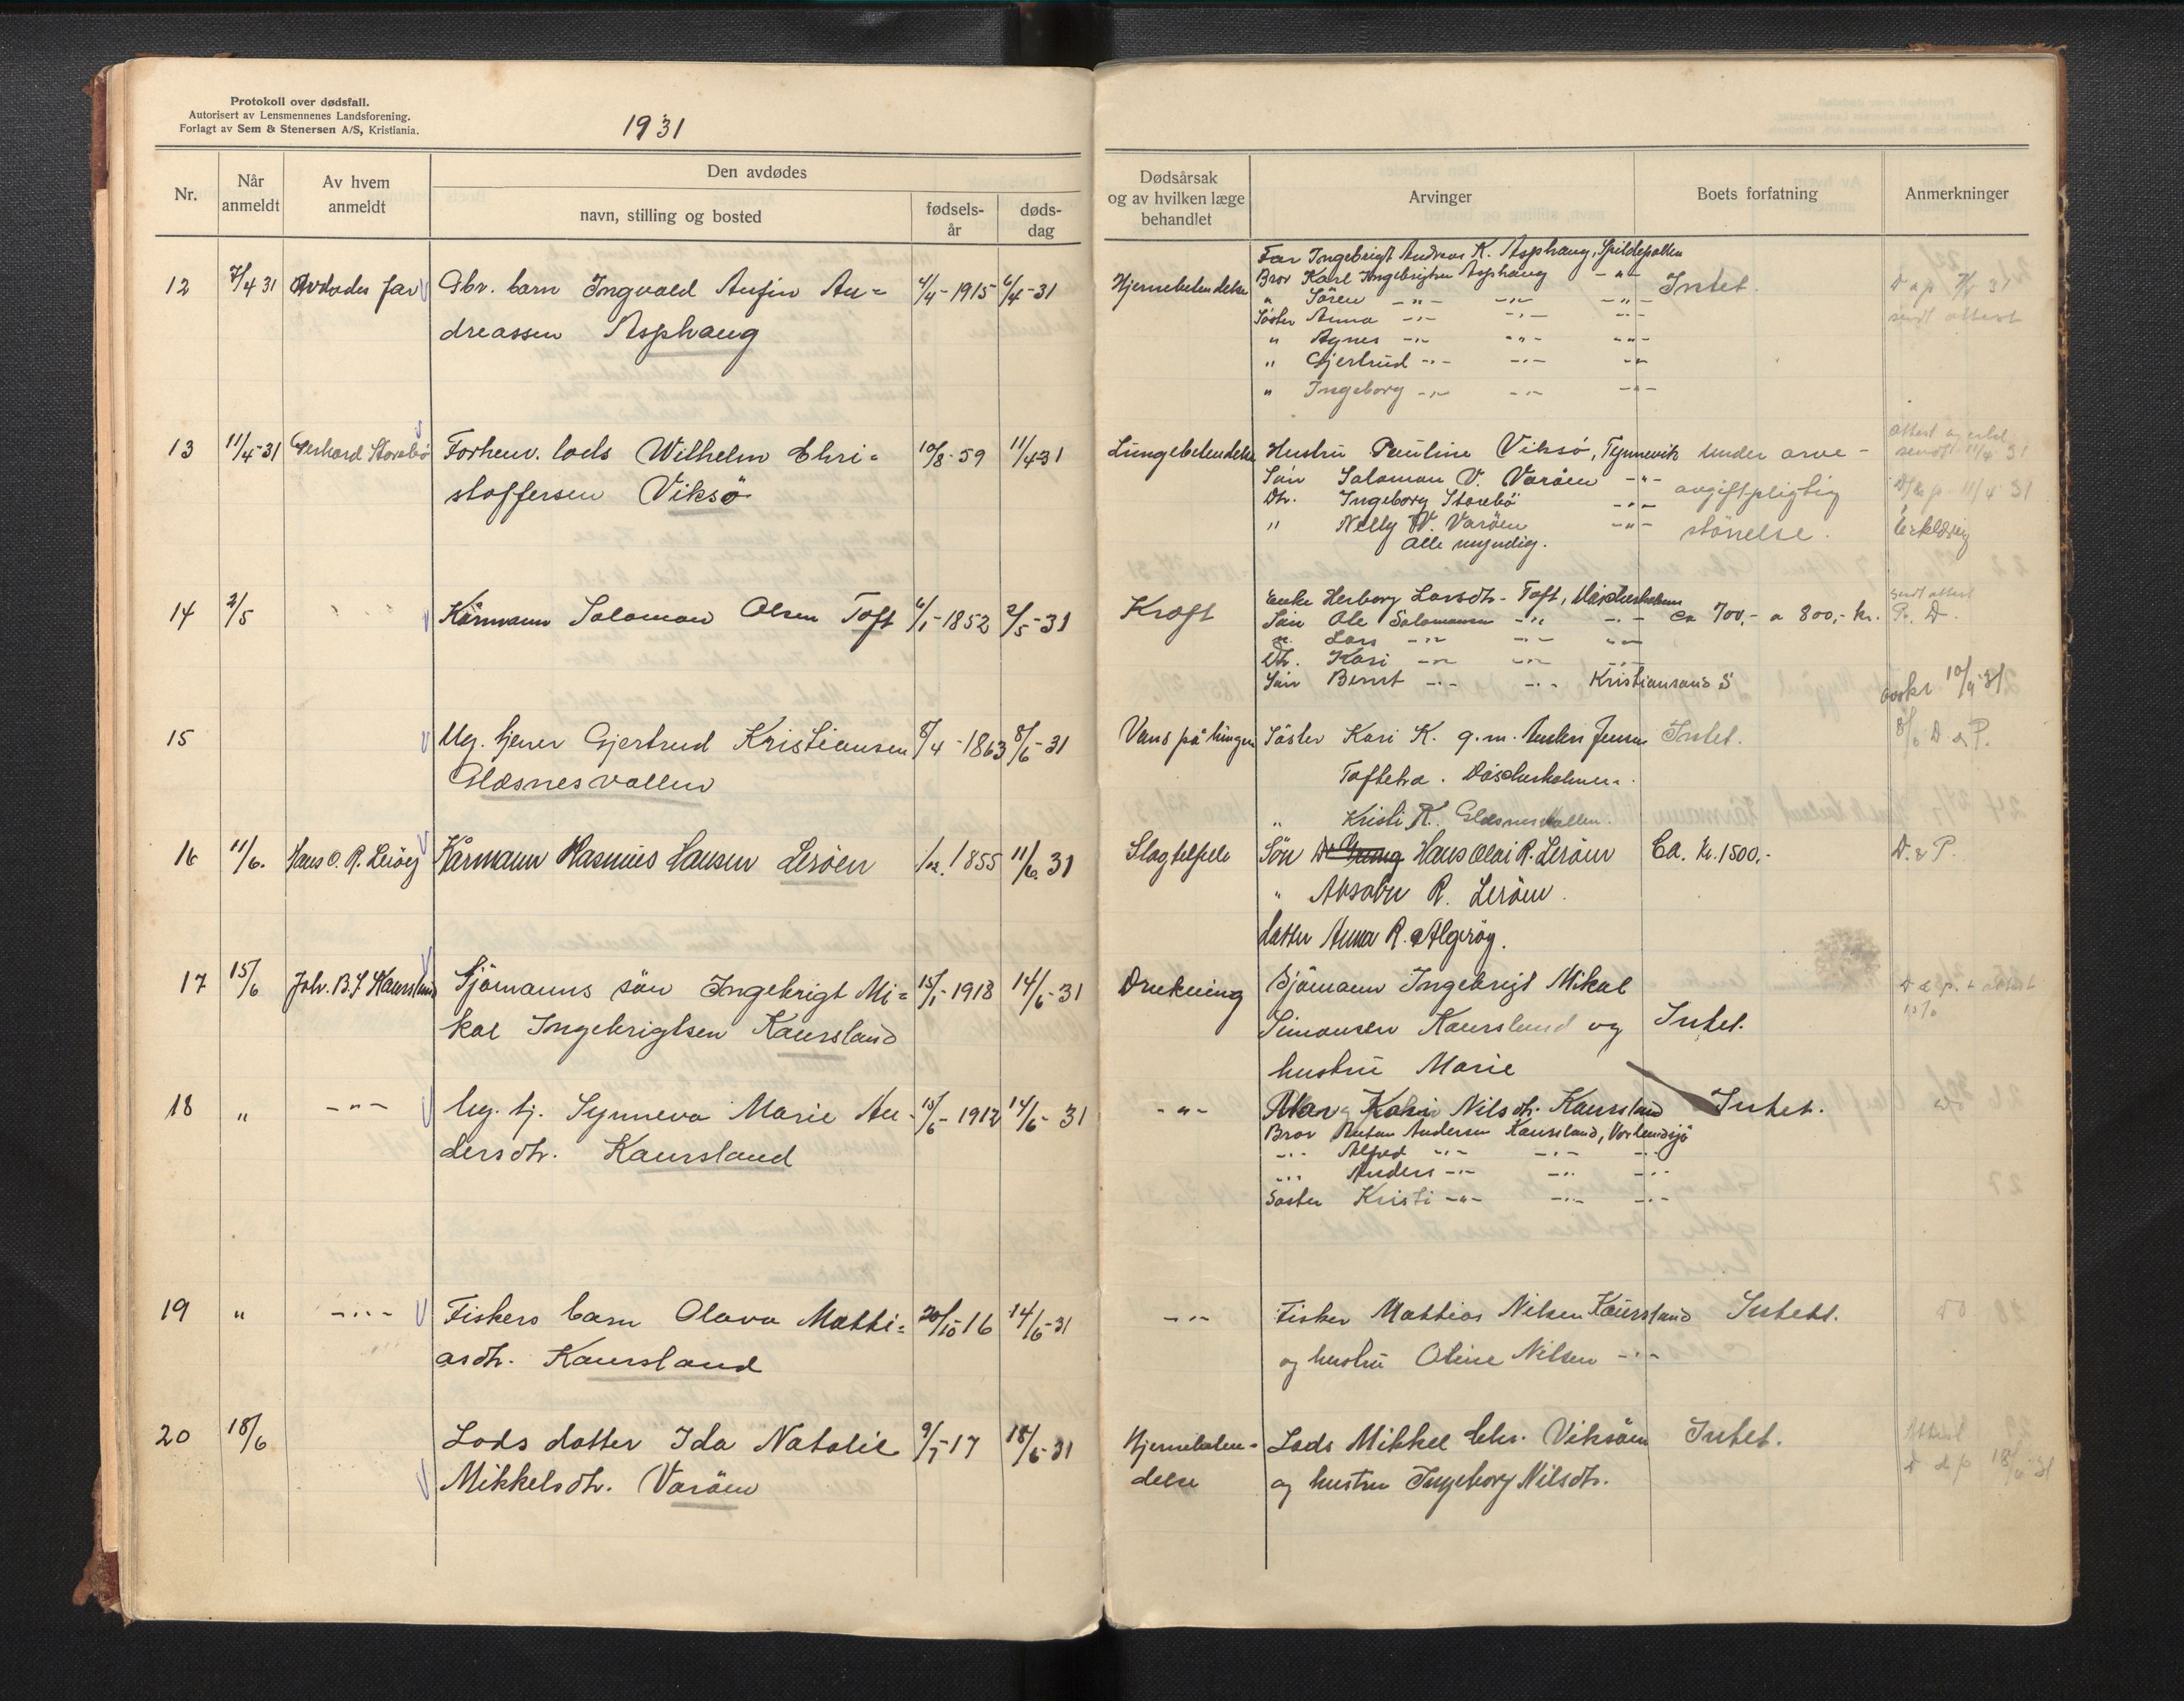 Protokoll over dødsfall.
Autorisert av Lensmennenes Landsforening.
Forlagt av Sem & Stenersen A/S, Kristiania.
1931
Nr.
Når anmeldt
Av hvem anmeldt
Den avdødes
navn, stilling og bosted
fødsels-år
døds-dag
Dødsårsak og av hvilken læge behandlet
Arvinger
Boets forfatning
Anmerkninger
12 7/4 31 Avdødes far Gbr. barn Ingvald Anfin An= 4/4-1915 6/4-31
dreassen Asphaug
Hjernebetendelse
Far Ingebrigt Andreas K. Asphaug, Spildepollen
Bror Karl Ingebrigtsen Asphaug -"-
" Sören -"- -"- -"-
Söster Anna -"- -"- -"-
" Agnes -"- -"- -"-
" Gjertrud -"- -"- -"-
" Ingeborg -"- -"- -"-
Intet.
sendt attest
13 11/4-31 Gerhard Storebö Forhenv. lods Wilhelm Chri= 10/8-59 11/4 31
stoffersen Viksö
Lungebetendelse
Hustru Pauline Viksö, Tynnevik
Sön Salomon V. Varöen -"-
Dtr. Ingeborg Storebö -"-
" Nelly W. Varöen -"-
Alle myndig.
under arve-
avgiftpligtig
störrelse.
sendt 11/4 31
11/4 31
Erklæring
14 2/5 Kårmann Salomon Olsen Toft 6/1-1852 2/5-31
Kræft
Enke Herborg Larsdtr. Toft,
Sön Ole Salomonsen -"- -"-
" Lars -"- -"- -"-
Dtr. Kari -"- -"- -"-
Sön Bernt -"- -"- Kristiansand S
Ca 700,- a 800,- kr.
sendt attest
P. D.
10/9-31
15 Ug. tjener Gjertrud Kristiansen 8/4-1863 8/6-31
Glæsnesvallen
Vand på lungen
Söster Kari K. g.m. Anders Jensen
Kristi K. Glæsnesvallen.
Intet.
8/6 D & P.
16 11/6. Hans O. R. Leröy Kårmann Rasmus Hansen Leröen 1/12. 1855 11/6. 31
Slagtilfelle
Sön Hans Olai R. Leröen
" Absalon R. Leröen.
Datter Anna R. Algröy.
Ca. kr. 1500,-
D. & P.
17 15/6 Joh. B. S. Haursland Sjömanns sön Ingebrigt Mi= 15/1-1918 14/6-31
kal Ingebrigtsen Kaursland
Drukning
Sjömann Ingebrigt Mikal
Simonsen Kaursland og
hustru Marie
Intet.
D & p. + attest
15/6
18 " -"- Ug. tj. Synneva Marie An- 15/6-1912 14/6-31
dersdtr. Kaursland
-"-
Kari Nilsdtr. Kaursland
Bror Anton Andersen Kaursland,
-"- Alfred -"- -"- -"-
-"- Anders -"- -"- -"-
Söster Kristi -"- -"- -"-
Intet.
19 " -"- Fiskers barn Olava Matti= 20/10 16 14/6-31
asdtr. Kaursland
-"-
Fisker Mattias Nilsen Kaursland
og hustru Oline Nilsen -"-
Intet.
20 18/6 Lods datter Ida Natalie 9/7-17 18/6-31
Mikkelsdtr. Varöen
Hjernebeten-
delse
Lods Mikkel Chr. Viksöen
og hustru Ingeborg Nilsdtr.
Intet.
Attest
D & p 18/6 31